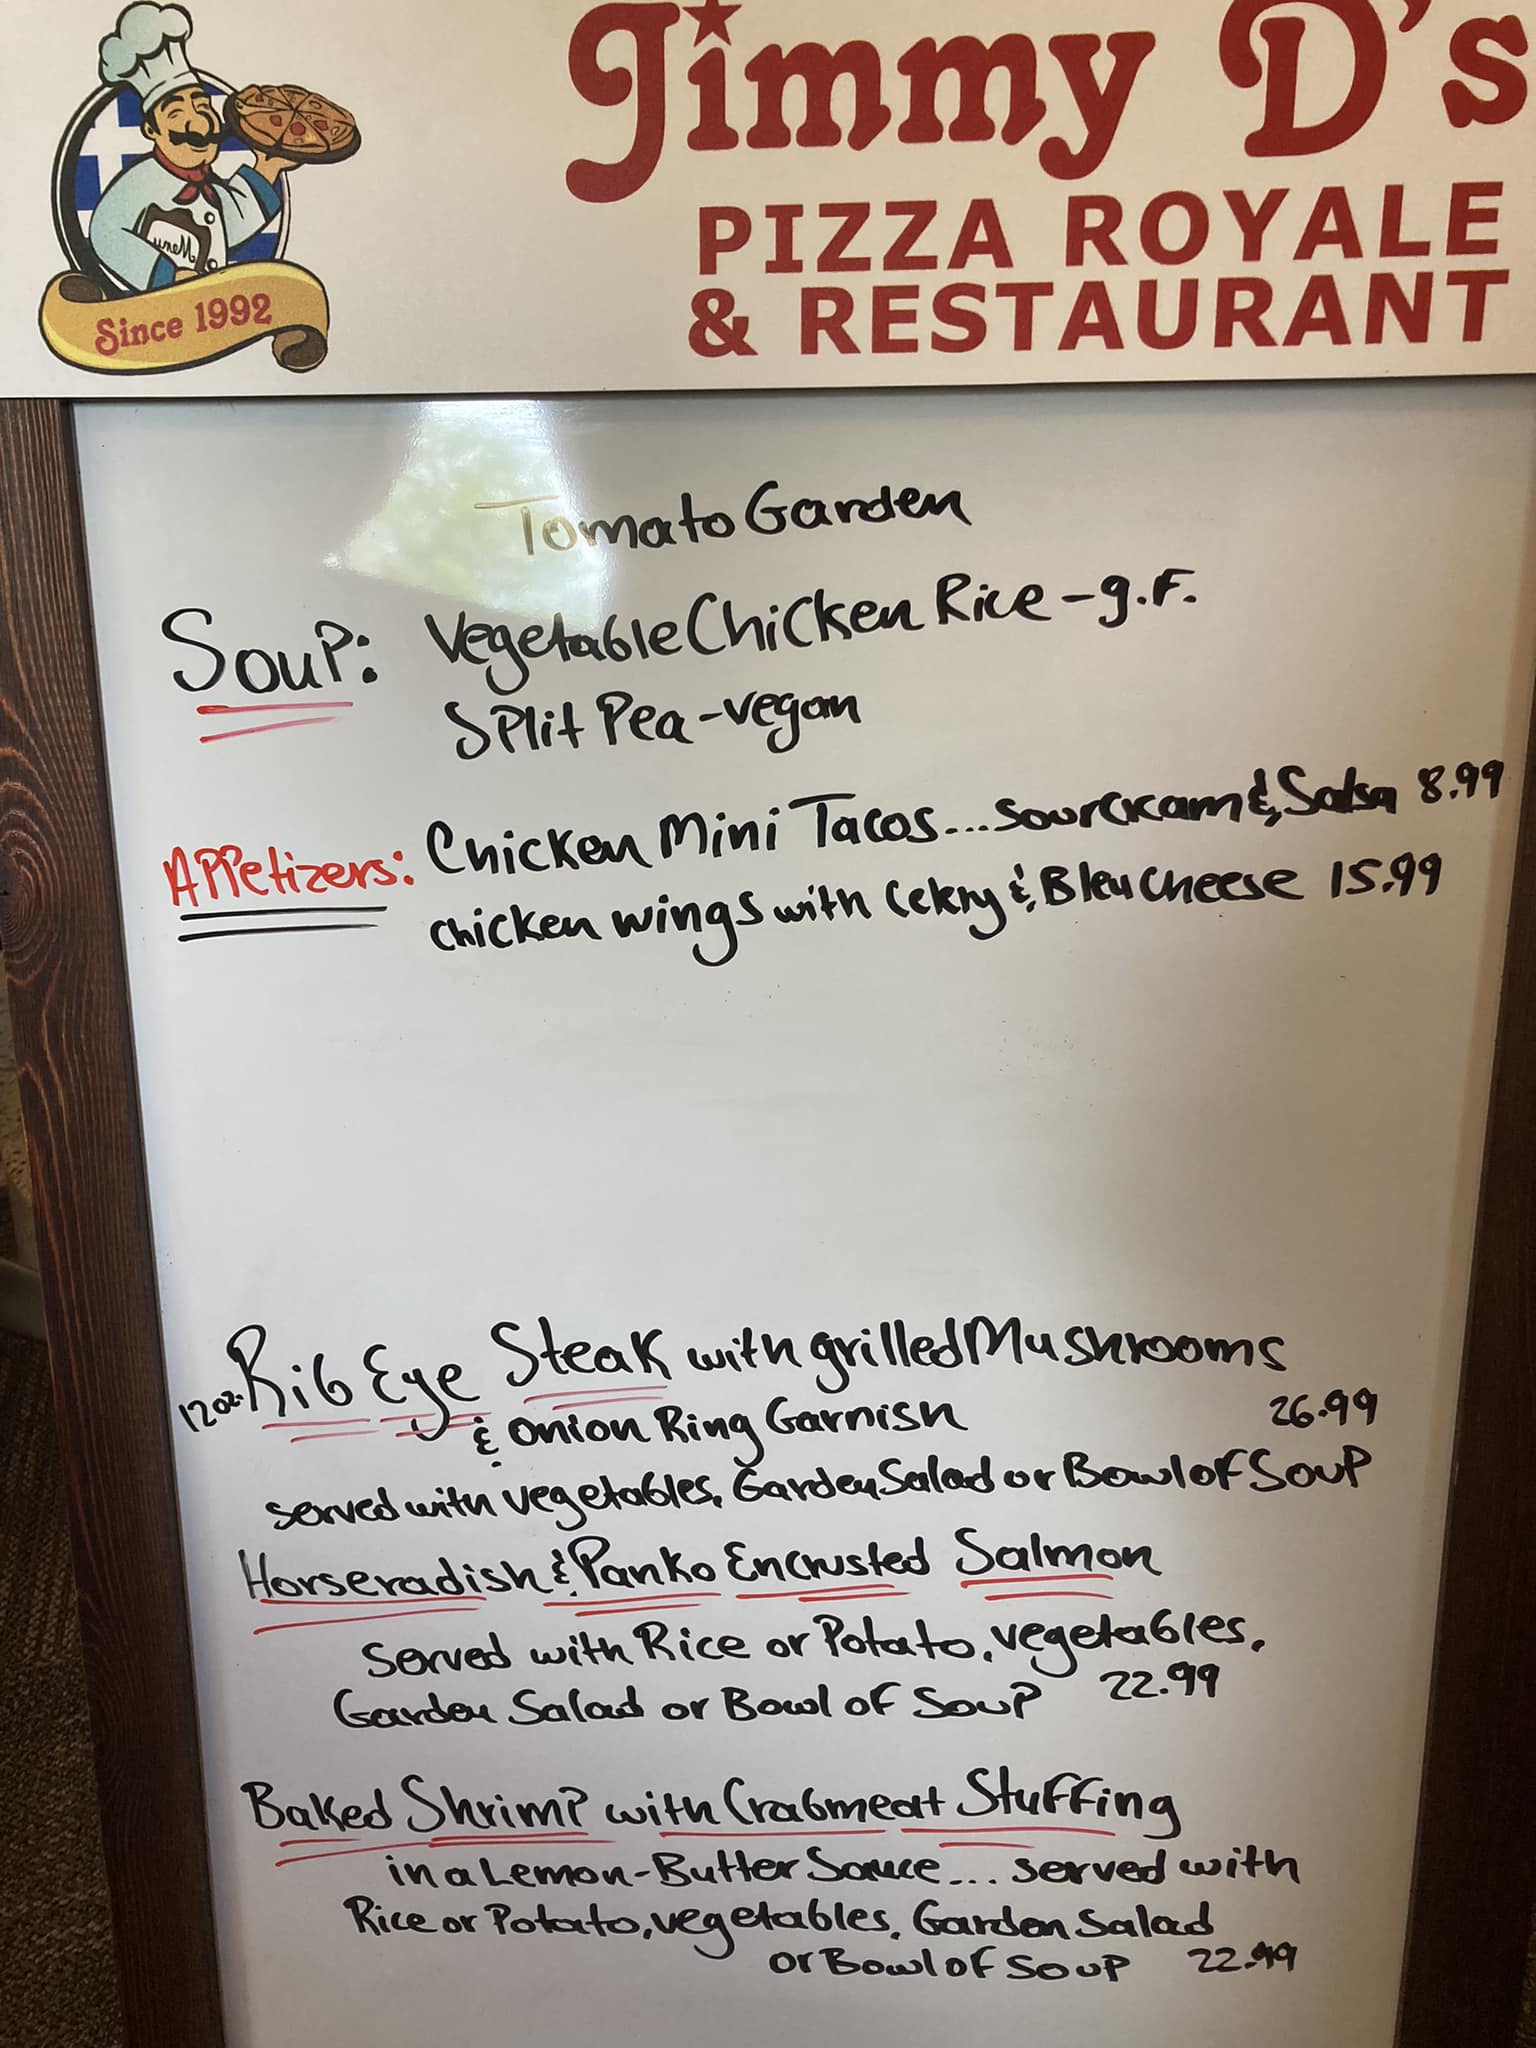 Jimmy D's
PIZZA ROYALE
& RESTAURANT
Menu
Since 1992
Tomato Garden
Soup: Vegetable Chicken Rice - g.F.
Split Pea - vegan
Appetizers: Chicken Mini Tacos... Sour Cream & Salsa 8.99
Chicken wings with Celery & Bleu Cheese 15.99
12 oz. Rib Eye Steak with grilled Mushrooms
& Onion Ring Garnish 26.99
served with vegetables, Garden Salad or Bowl of Soup
Horseradish & Panko Encrusted Salmon
Served with Rice or Potato, vegetables,
Garden Salad or Bowl of Soup 22.99
Baked Shrimp with Crabmeat Stuffing
in a Lemon-Butter Sauce... served with
Rice or Potato, vegetables, Garden Salad
or Bowl of Soup 22.99